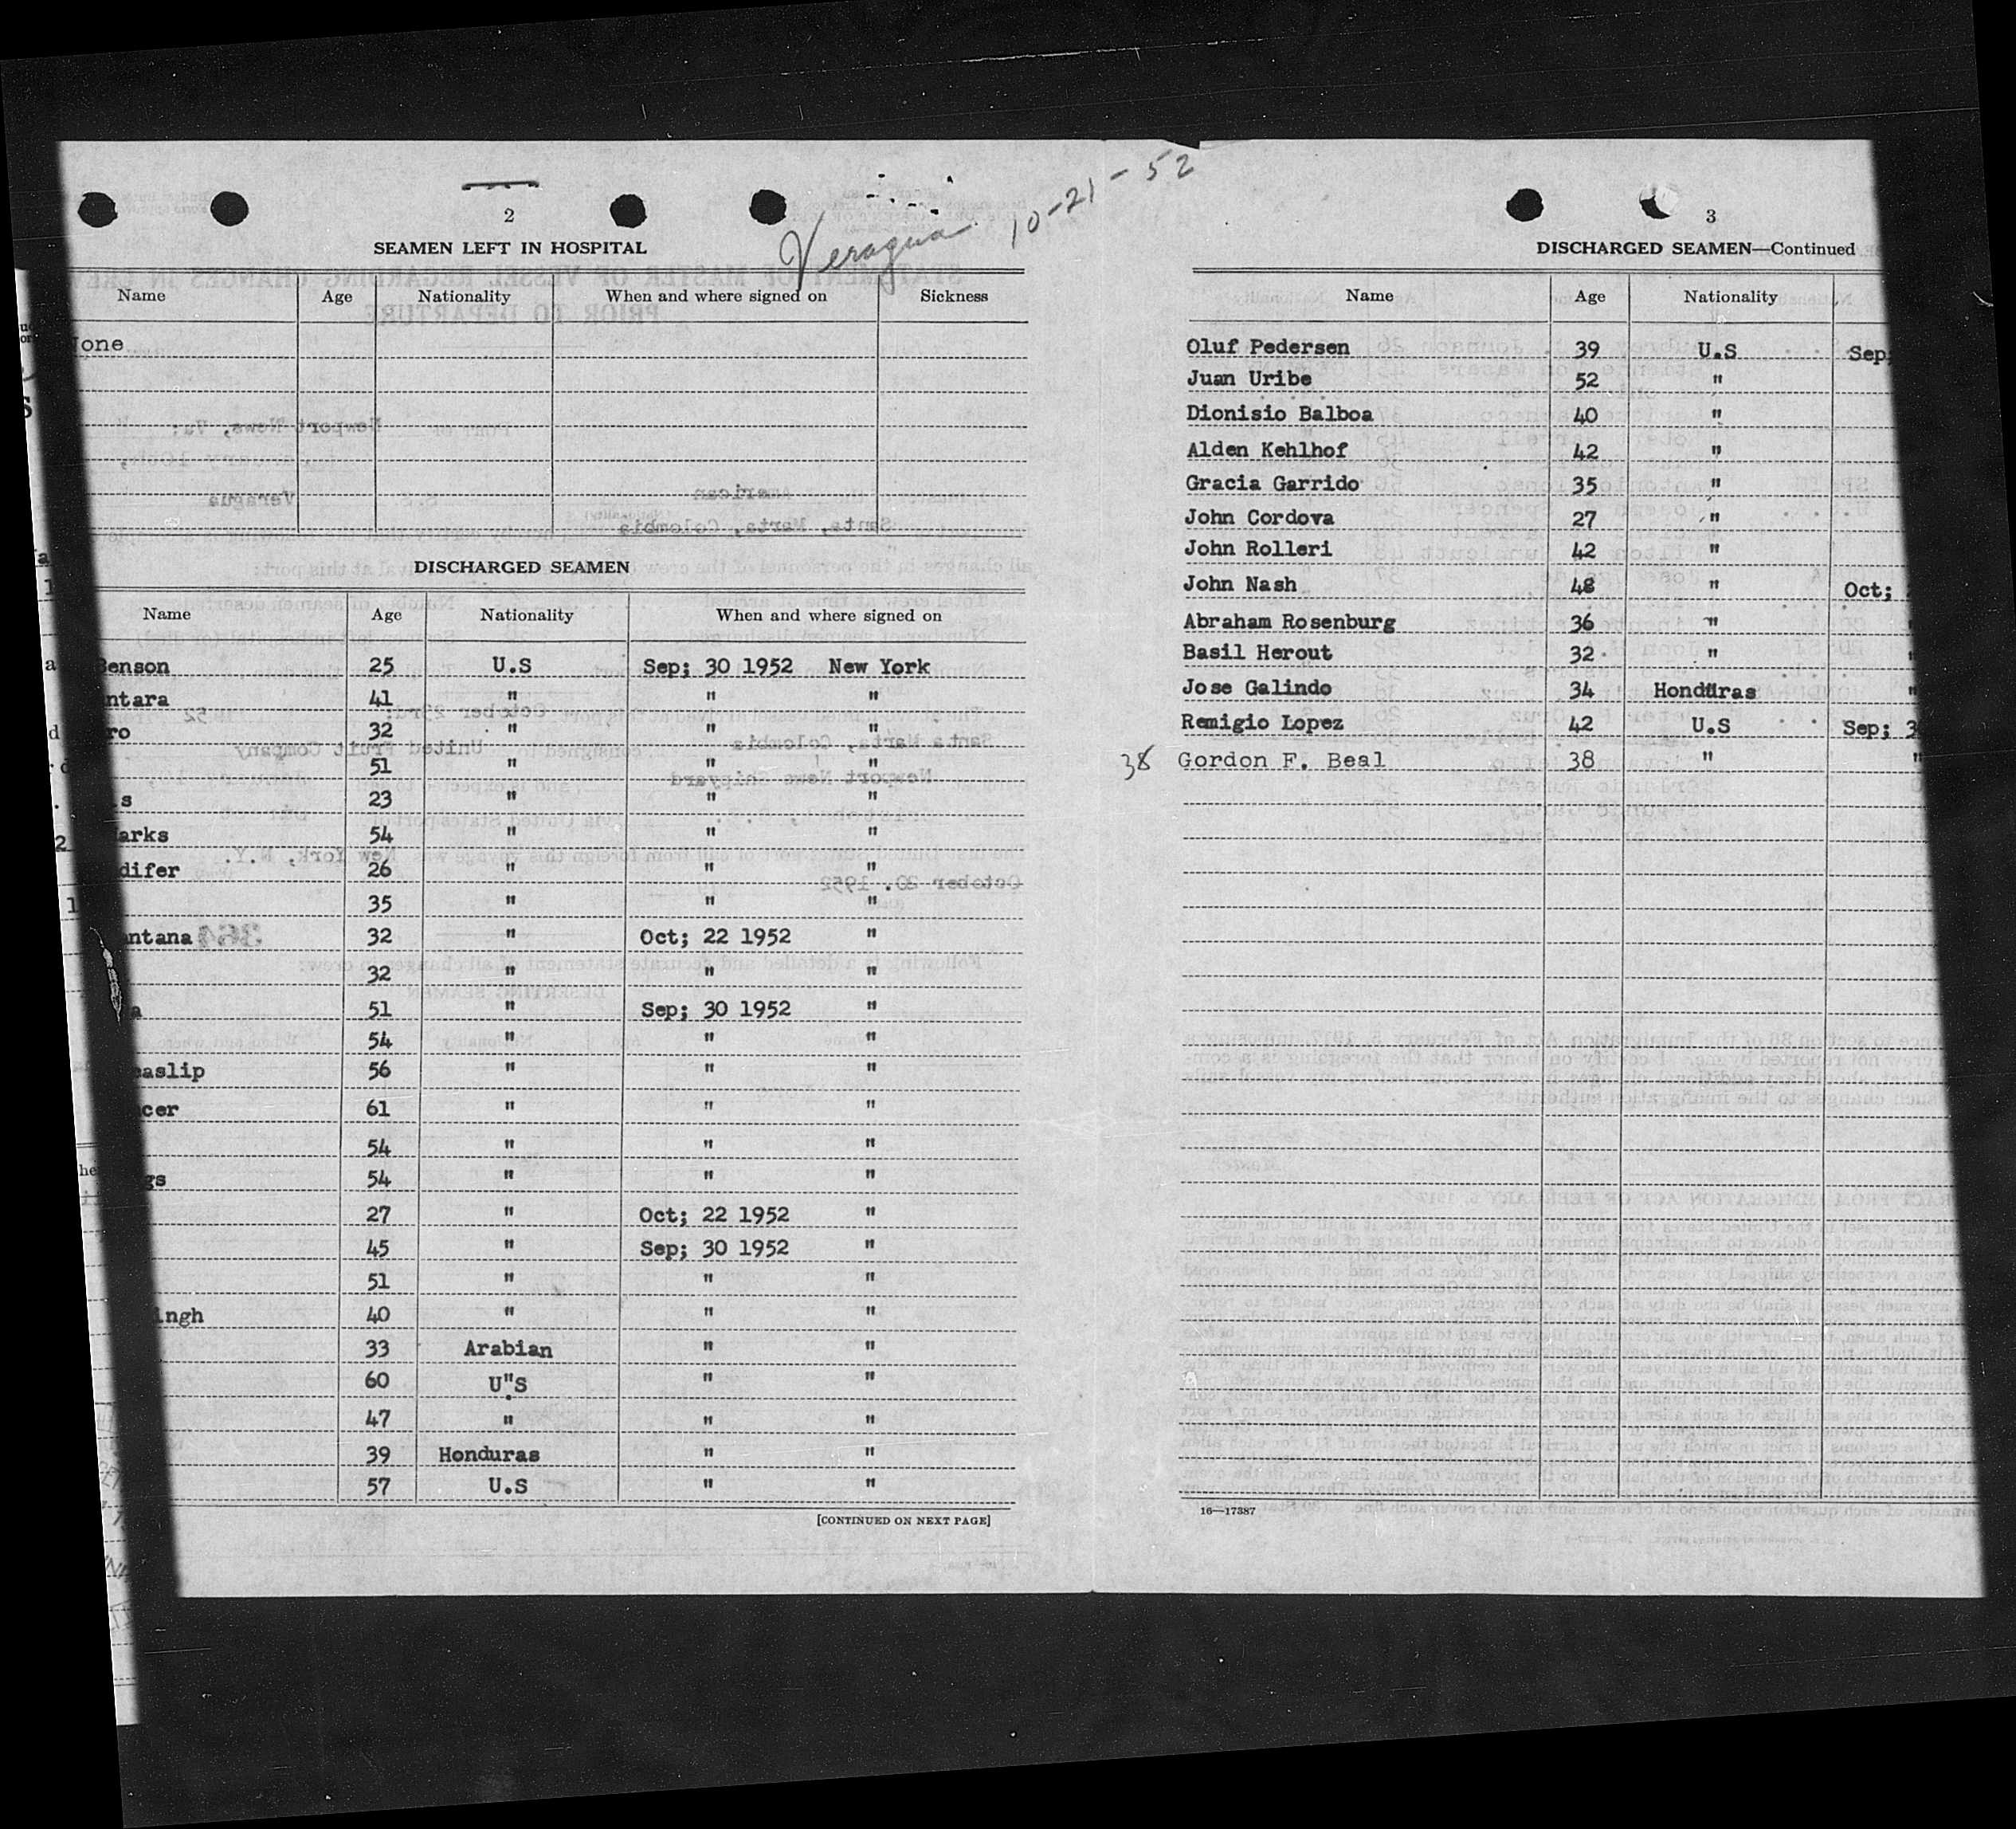 2
SEAMEN LEFT IN HOSPITAL
Veragua 10-21-52
Name Age Nationality When and where signed on Sickness
None
DISCHARGED SEAMEN
Name Age Nationality When and where signed on
Benson 25 U.S Sep; 30 1952 New York
ntara 41 " " "
ro 32 " " "
51 " " "
s 23 " " "
arks 54 " " "
difer 26 " " "
35 " " "
ntana 32 " Oct; 22 1952 "
32 " " "
a 51 " Sep; 30 1952 "
54 " " "
easlip 56 " " "
cer 61 " " "
54 " " "
gs 54 " " "
27 " Oct; 22 1952 "
45 " Sep; 30 1952 "
51 " " "
ingh 40 " " "
33 Arabian " "
60 U"S " "
47 " " "
39 Honduras " "
57 U.S " "
[CONTINUED ON NEXT PAGE]
3
DISCHARGED SEAMEN—Continued
Name Age Nationality
Oluf Pedersen 39 U.S Sep;
Juan Uribe 52 "
Dionisio Balboa 40 "
Alden Kehlhof 42 "
Gracia Garrido 35 "
John Cordova 27 "
John Rolleri 42 "
John Nash 48 " Oct;
Abraham Rosenburg 36 " "
Basil Herout 32 " "
Jose Galindo 34 Honduras "
Remigio Lopez 42 U.S Sep; 3
38 Gordon F. Beal 38 " "
16—17387